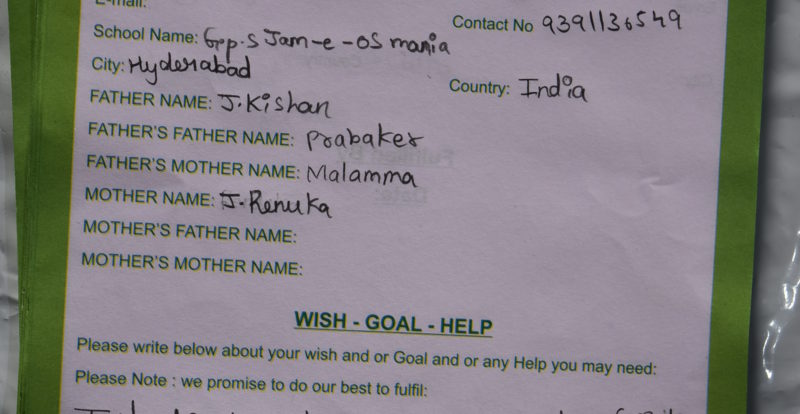 E-mail:
School Name: Gp.S Jam-e-OSmania
Contact No 9391136549
City: Hyderabad
Country: India
FATHER NAME: J.Kishan
FATHER'S FATHER NAME: Prabaker
FATHER'S MOTHER NAME: Malamma
MOTHER NAME: J.Renuka
MOTHER'S FATHER NAME:
MOTHER'S MOTHER NAME:
WISH - GOAL - HELP
Please write below about your wish and or Goal and or any Help you may need:
Please Note : we promise to do our best to fulfil: